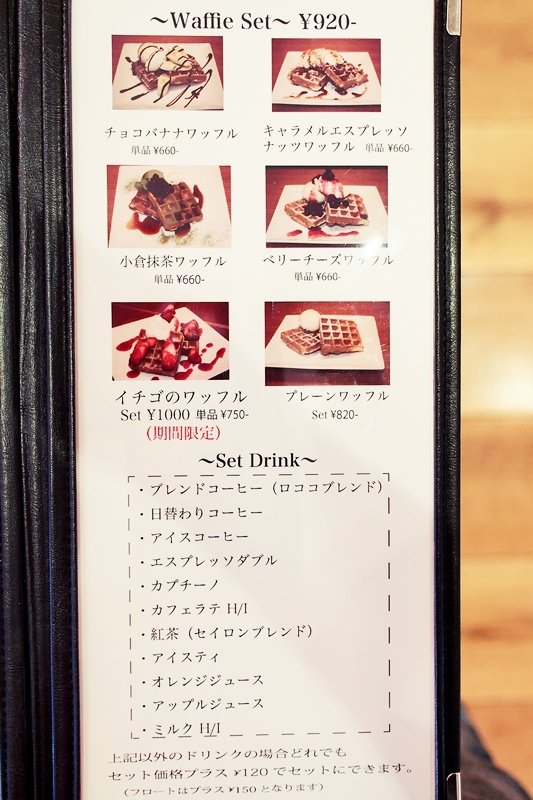 ～Waffie Set～ ¥920-
チョコバナナワッフル
単品 ¥660-
キャラメルエスプレッソ
ナッツワッフル 単品 ¥660-
小倉抹茶ワッフル
単品 ¥660-
ベリーチーズワッフル
単品 ¥660-
イチゴのワッフル
Set ¥1000 単品 ¥750-
(期間限定)
プレーンワッフル
Set ¥820-
～Set Drink～
・ブレンドコーヒー（ロココブレンド）
・日替わりコーヒー
・アイスコーヒー
・エスプレッソダブル
・カプチーノ
・カフェラテ H/I
・紅茶（セイロンブレンド）
・アイスティ
・オレンジジュース
・アップルジュース
・ミルク H/I
上記以外のドリンクの場合どれでも
セット価格プラス ¥120 でセットにできます。
（フロートはプラス ¥150 となります）